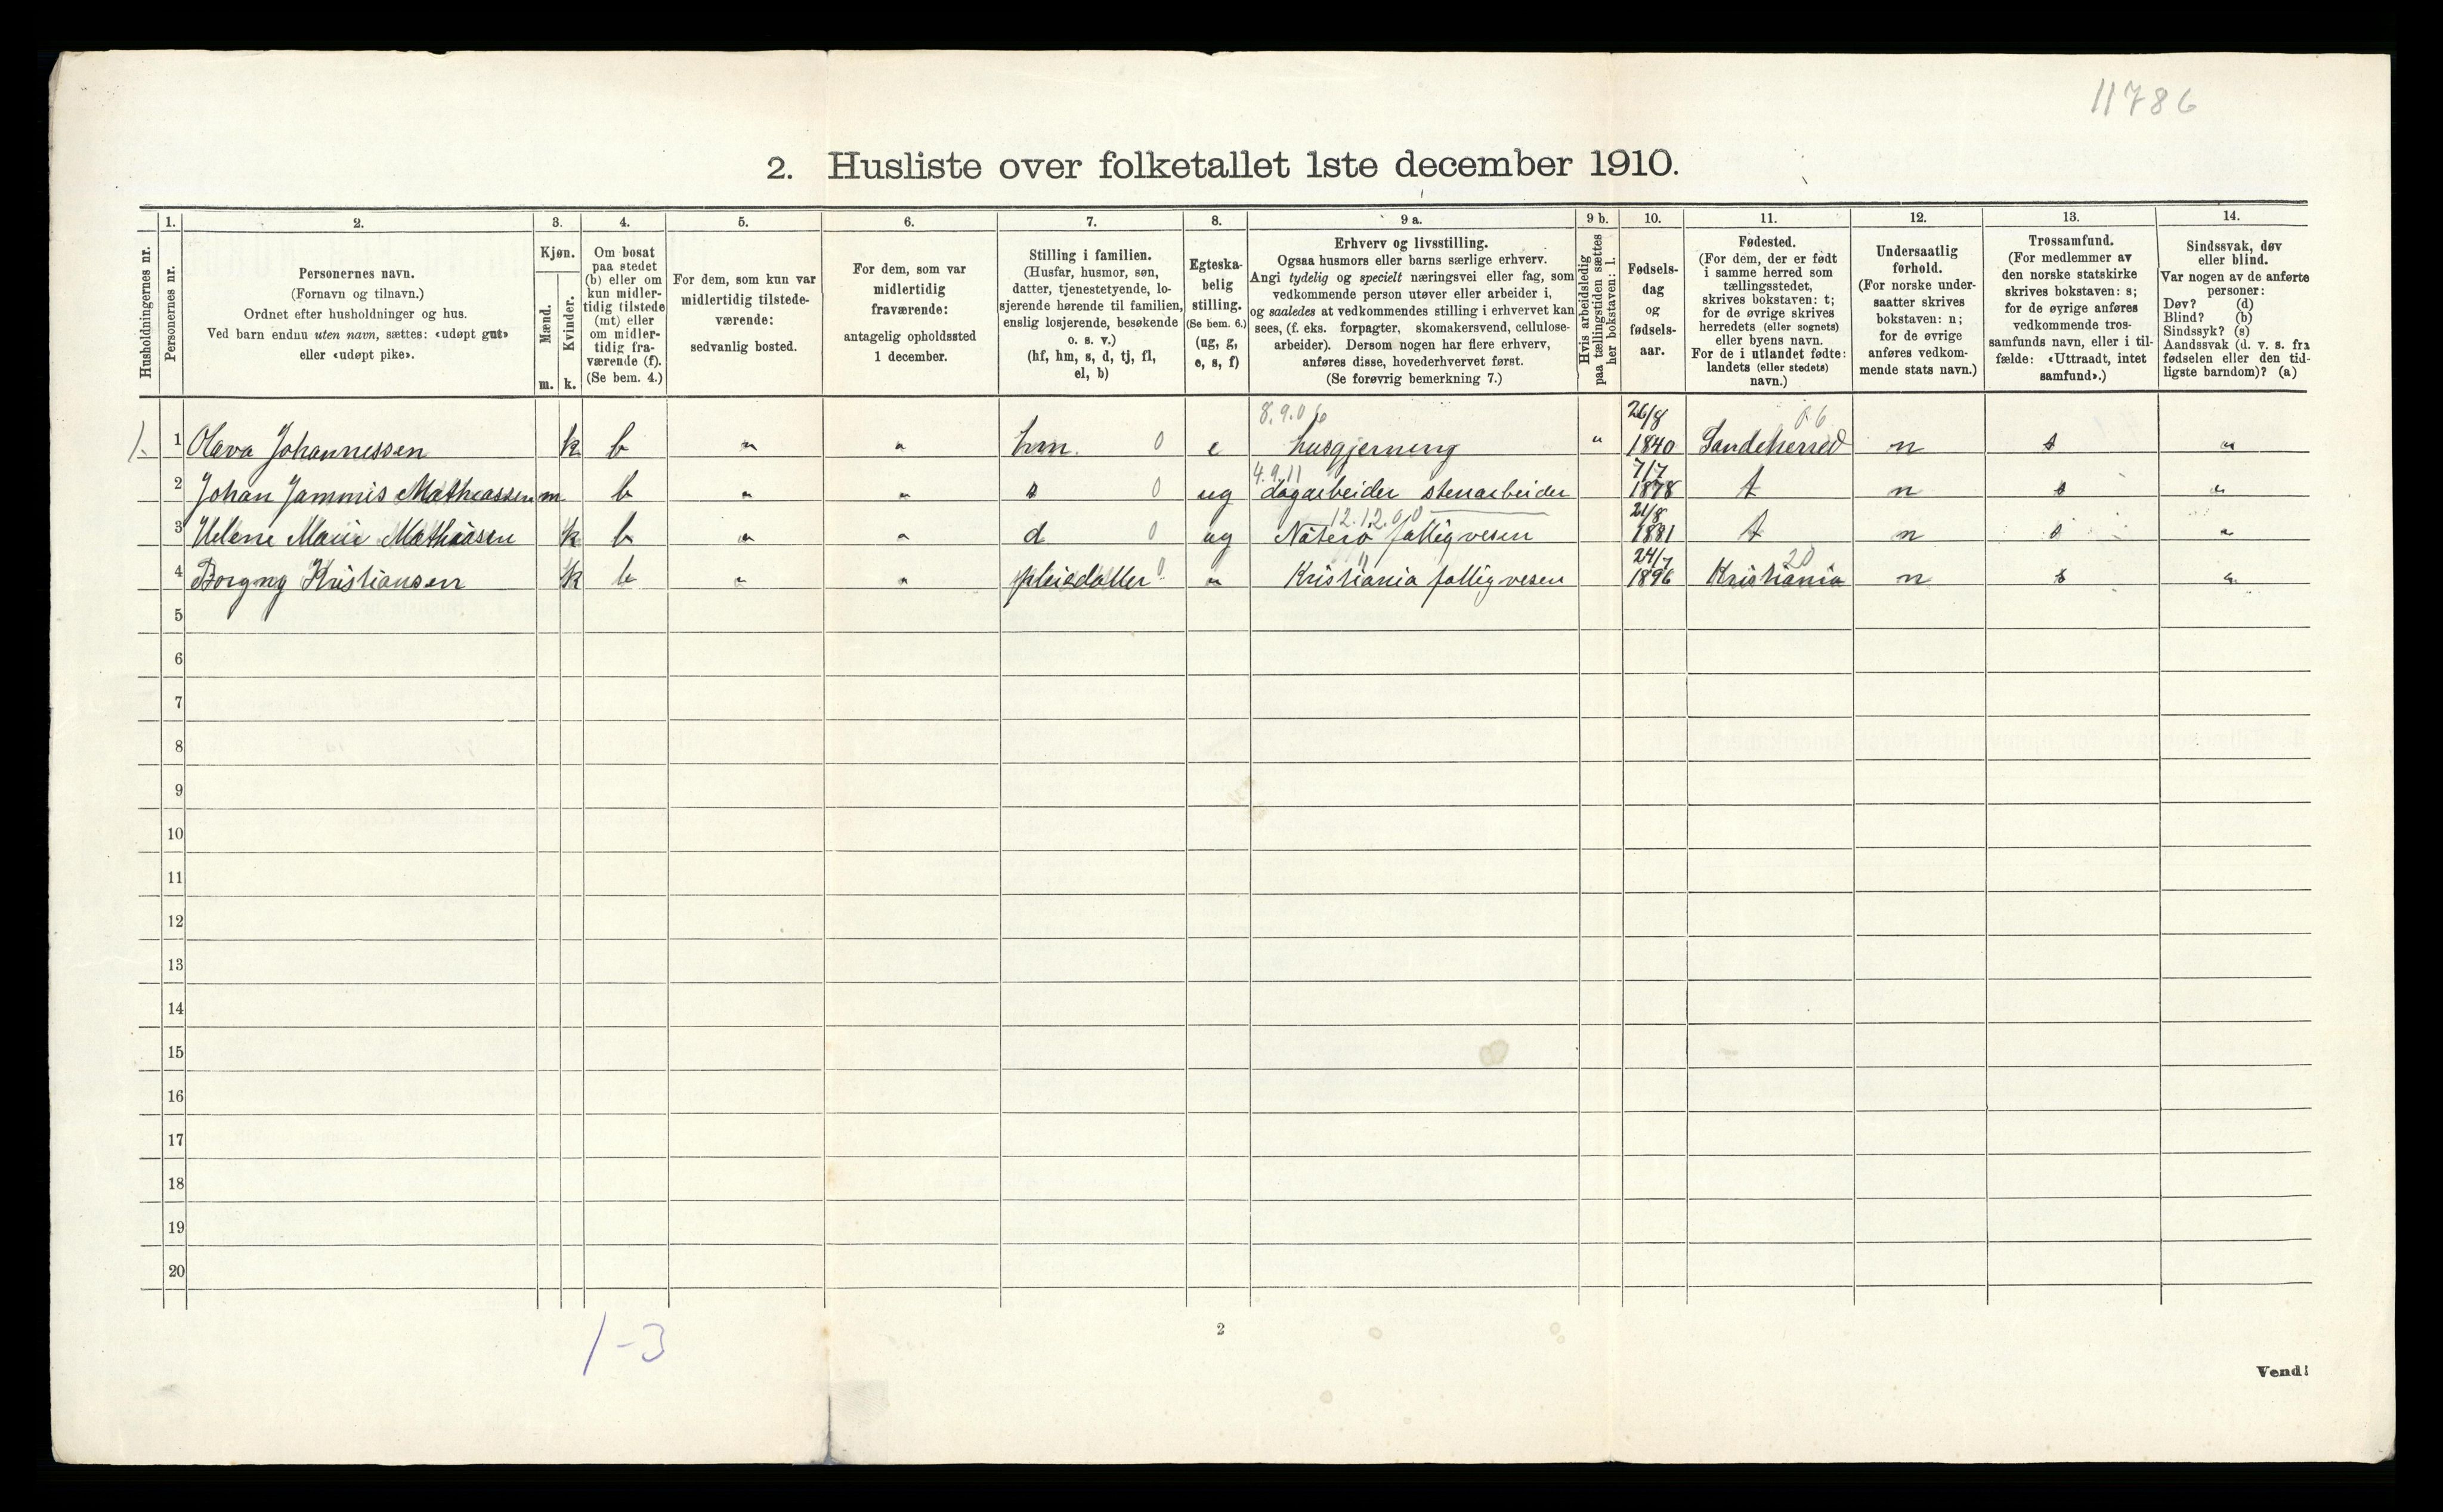 11786
2. Husliste over folketallet 1ste december 1910.
Husholdningernes nr.
1.
Personernes nr.
2.
Personernes navn.
(Fornavn og tilnavn.)
Ordnet efter husholdninger og hus.
Ved barn endnu uten navn, sættes: «udøpt gut»
eller «udøpt pike».
3.
Kjøn.
Mænd.
m.
Kvinder.
k.
4.
Om bosat
paa stedet
(b) eller om
kun midler-
tidig tilstede
(mt) eller
om midler-
tidig fra-
værende (f).
(Se bem. 4.)
5.
For dem, som kun var
midlertidig tilstede-
værende:
sedvanlig bosted.
6.
For dem, som var
midlertidig
fraværende:
antagelig opholdssted
1 december.
7.
Stilling i familien.
(Husfar, husmor, søn,
datter, tjenestetyende, lo-
sjerende hørende til familien,
enslig losjerende, besøkende
o. s. v.)
(hf, hm, s, d, tj, fl,
el, b)
8.
Egteska-
belig
stilling.
(Se bem. 6.)
(ug, g,
e, s, f)
9 a.
Erhverv og livsstilling.
Ogsaa husmors eller barns særlige erhverv.
Angi tydelig og specielt næringsvei eller fag, som
vedkommende person utøver eller arbeider i,
og saaledes at vedkommendes stilling i erhvervet kan
sees, (f. eks. forpagter, skomakersvend, cellulose-
arbeider). Dersom nogen har flere erhverv,
anføres disse, hovederhvervet først.
(Se forøvrig bemerkning 7.)
9 b.
Hvis arbeidsledig
paa tællingstiden sættes
her bokstaven: l.
10.
Fødsels-
dag
og
fødsels-
aar.
11.
Fødested.
(For dem, der er født
i samme herred som
tællingsstedet,
skrives bokstaven: t;
for de øvrige skrives
herredets (eller sognets)
eller byens navn.
For de i utlandet fødte:
landets (eller stedets)
navn.)
12.
Undersaatlig
forhold.
(For norske under-
saatter skrives
bokstaven: n;
for de øvrige
anføres vedkom-
mende stats navn.)
13.
Trossamfund.
(For medlemmer av
den norske statskirke
skrives bokstaven: s;
for de øyrige anføres
vedkommende tros-
samfunds navn, eller i til-
fælde: «Uttraadt, intet
samfund».)
14.
Sindssvak, døv
eller blind.
Var nogen av de anførte
personer:
Døv? (d)
Blind? (b)
Sindssyk? (s)
Aandssvak (d. v. s. fra
fødselen eller den tid-
ligste barndom)? (a)
8.9.06 26/8 06
1. 1 Olava Johannessen k b " " hm. 0 e husgjerning " 1840 Sandeherred n s "
4.9.11 7/7
2 Johan Jammis Mathiassen m b " " s 0 ug dagarbeider stenarbeider 1878 t n s "
12.12.00 21/8
3 Helene Marie Mathiasen k b " " d 0 ug Nøterø fattigvesen 1881 t n s "
" 24/7 20
4 Borgny Kristiansen k b " " pleiedatter 0 " Kristiania fattigvesen 1896 Kristiania n s "
5
6
7
8
9
10
11
12
13
14
15
16
17
18
19
20
1-3
2
Vend!